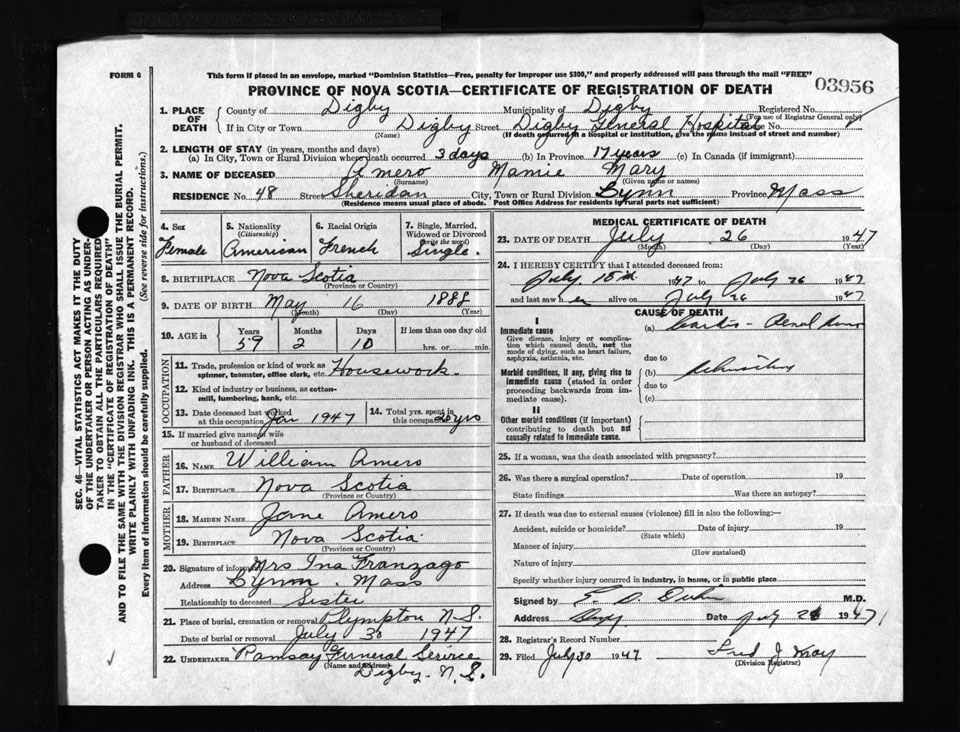 FORM 6
This form if placed in an envelope, marked "Dominion Statistics—Free, penalty for improper use $300," and properly addressed will pass through the mail "FREE"
03956
PROVINCE OF NOVA SCOTIA—CERTIFICATE OF REGISTRATION OF DEATH
1. PLACE OF DEATH
County of Digby Municipality of Digby Registered No.
(For use of Registrar General only)
If in City or Town Digby Street Digby General Hospital House No.
(Name) (If death occurred in a hospital or institution, give the name instead of street and number)
2. LENGTH OF STAY (in years, months and days)
(a) In City, Town or Rural Division where death occurred 3 days (b) In Province 17 years (c) In Canada (if immigrant)
3. NAME OF DECEASED Amero Mamie Mary
(Surname) (Given name or names)
RESIDENCE No. 48 Street Sheridan City, Town or Rural Division Lynn Province Mass
(Residence means usual place of abode. Post Office Address for residents in rural parts not sufficient)
4. Sex Female
5. Nationality (Citizenship) American
6. Racial Origin French
7. Single, Married, Widowed or Divorced (write the word) Single.
8. BIRTHPLACE Nova Scotia
(Province or Country)
9. DATE OF BIRTH May 16 1888
(Month) (Day) (Year)
10. AGE in Years Months Days If less than one day old
59 2 10 hrs. or min.
OCCUPATION
11. Trade, profession or kind of work as spinner, teamster, office clerk, etc. Housework.
12. Kind of industry or business, as cotton-mill, lumbering, bank, etc.
13. Date deceased last worked at this occupation Jan 1947
14. Total yrs. spent in this occupation yrs
15. If married give name of wife or husband of deceased
FATHER
16. NAME William Amero
17. BIRTHPLACE Nova Scotia
(Province or Country)
MOTHER
18. MAIDEN NAME Jane Amero
19. BIRTHPLACE Nova Scotia
(Province or Country)
20. Signature of informant Mrs Ina Franzago
Address Lynn. Mass
Relationship to deceased Sister
21. Place of burial, cremation or removal Plympton N.S.
Date of burial or removal July 30 1947
22. UNDERTAKER Ramsay Funeral Service
(Name and Address)
Digby. N.S.
MEDICAL CERTIFICATE OF DEATH
23. DATE OF DEATH July 26 1947
(Month) (Day) (Year)
24. I HEREBY CERTIFY that I attended deceased from:
July 15th 1947 to July 26 1947
and last saw her alive on July 26 1947
CAUSE OF DEATH
I
Immediate cause
Give disease, injury or complication which caused death, not the mode of dying, such as heart failure, asphyxia, asthenia, etc.
(a) Cardio-Renal
due to
Morbid conditions, if any, giving rise to immediate cause (stated in order proceeding backwards from immediate cause).
(b)
due to
(c)
II
Other morbid conditions (if important) contributing to death but not causally related to immediate cause.
25. If a woman, was the death associated with pregnancy?
26. Was there a surgical operation? Date of operation 19
State findings Was there an autopsy?
27. If death was due to external causes (violence) fill in also the following:—
Accident, suicide or homicide? Date of injury 19
(State which)
Manner of injury
(How sustained)
Nature of injury
Specify whether injury occurred in industry, in home, or in public place
Signed by M.D.
Address Date July 28 1947
28. Registrar's Record Number
29. Filed July 30 1947 Fred J May
(Division Registrar)
SEC. 46—VITAL STATISTICS ACT MAKES IT THE DUTY
OF THE UNDERTAKER OR PERSON ACTING AS UNDER-
TAKER TO OBTAIN ALL THE PARTICULARS REQUIRED
IN THE "CERTIFICATE OF REGISTRATION OF DEATH"
AND TO FILE THE SAME WITH THE DIVISION REGISTRAR WHO SHALL ISSUE THE BURIAL PERMIT.
WRITE PLAINLY WITH UNFADING INK. THIS IS A PERMANENT RECORD.
Every item of information should be carefully supplied. (See reverse side for instructions.)